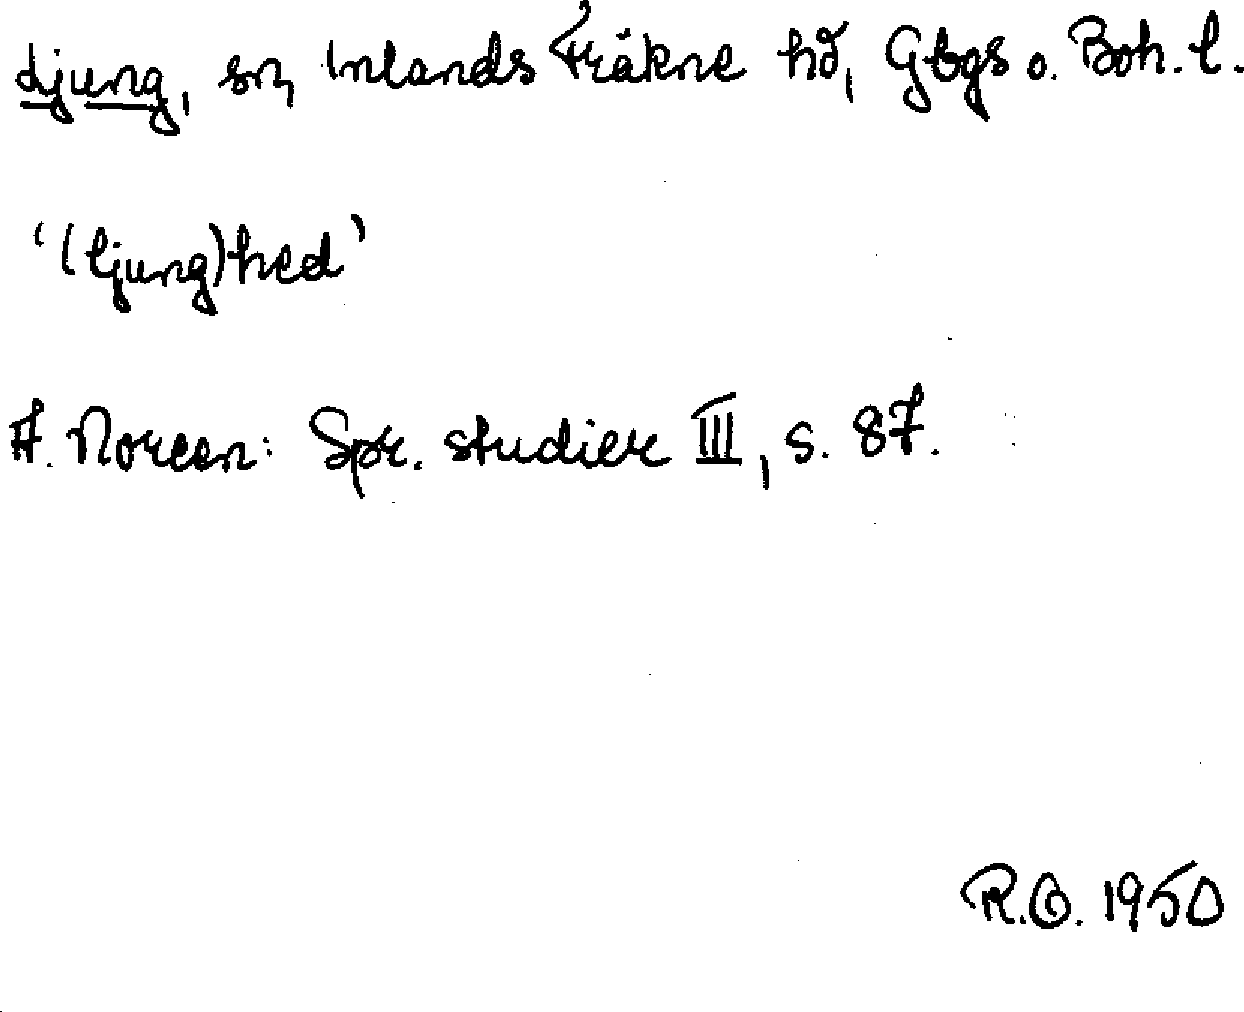 Ljung, sn, Inlands Fräkne hd, Gbgs o. Boh. l.
'(ljung)hed'
A. Noreen: Spr. studier III, s. 87.
R.O. 1950